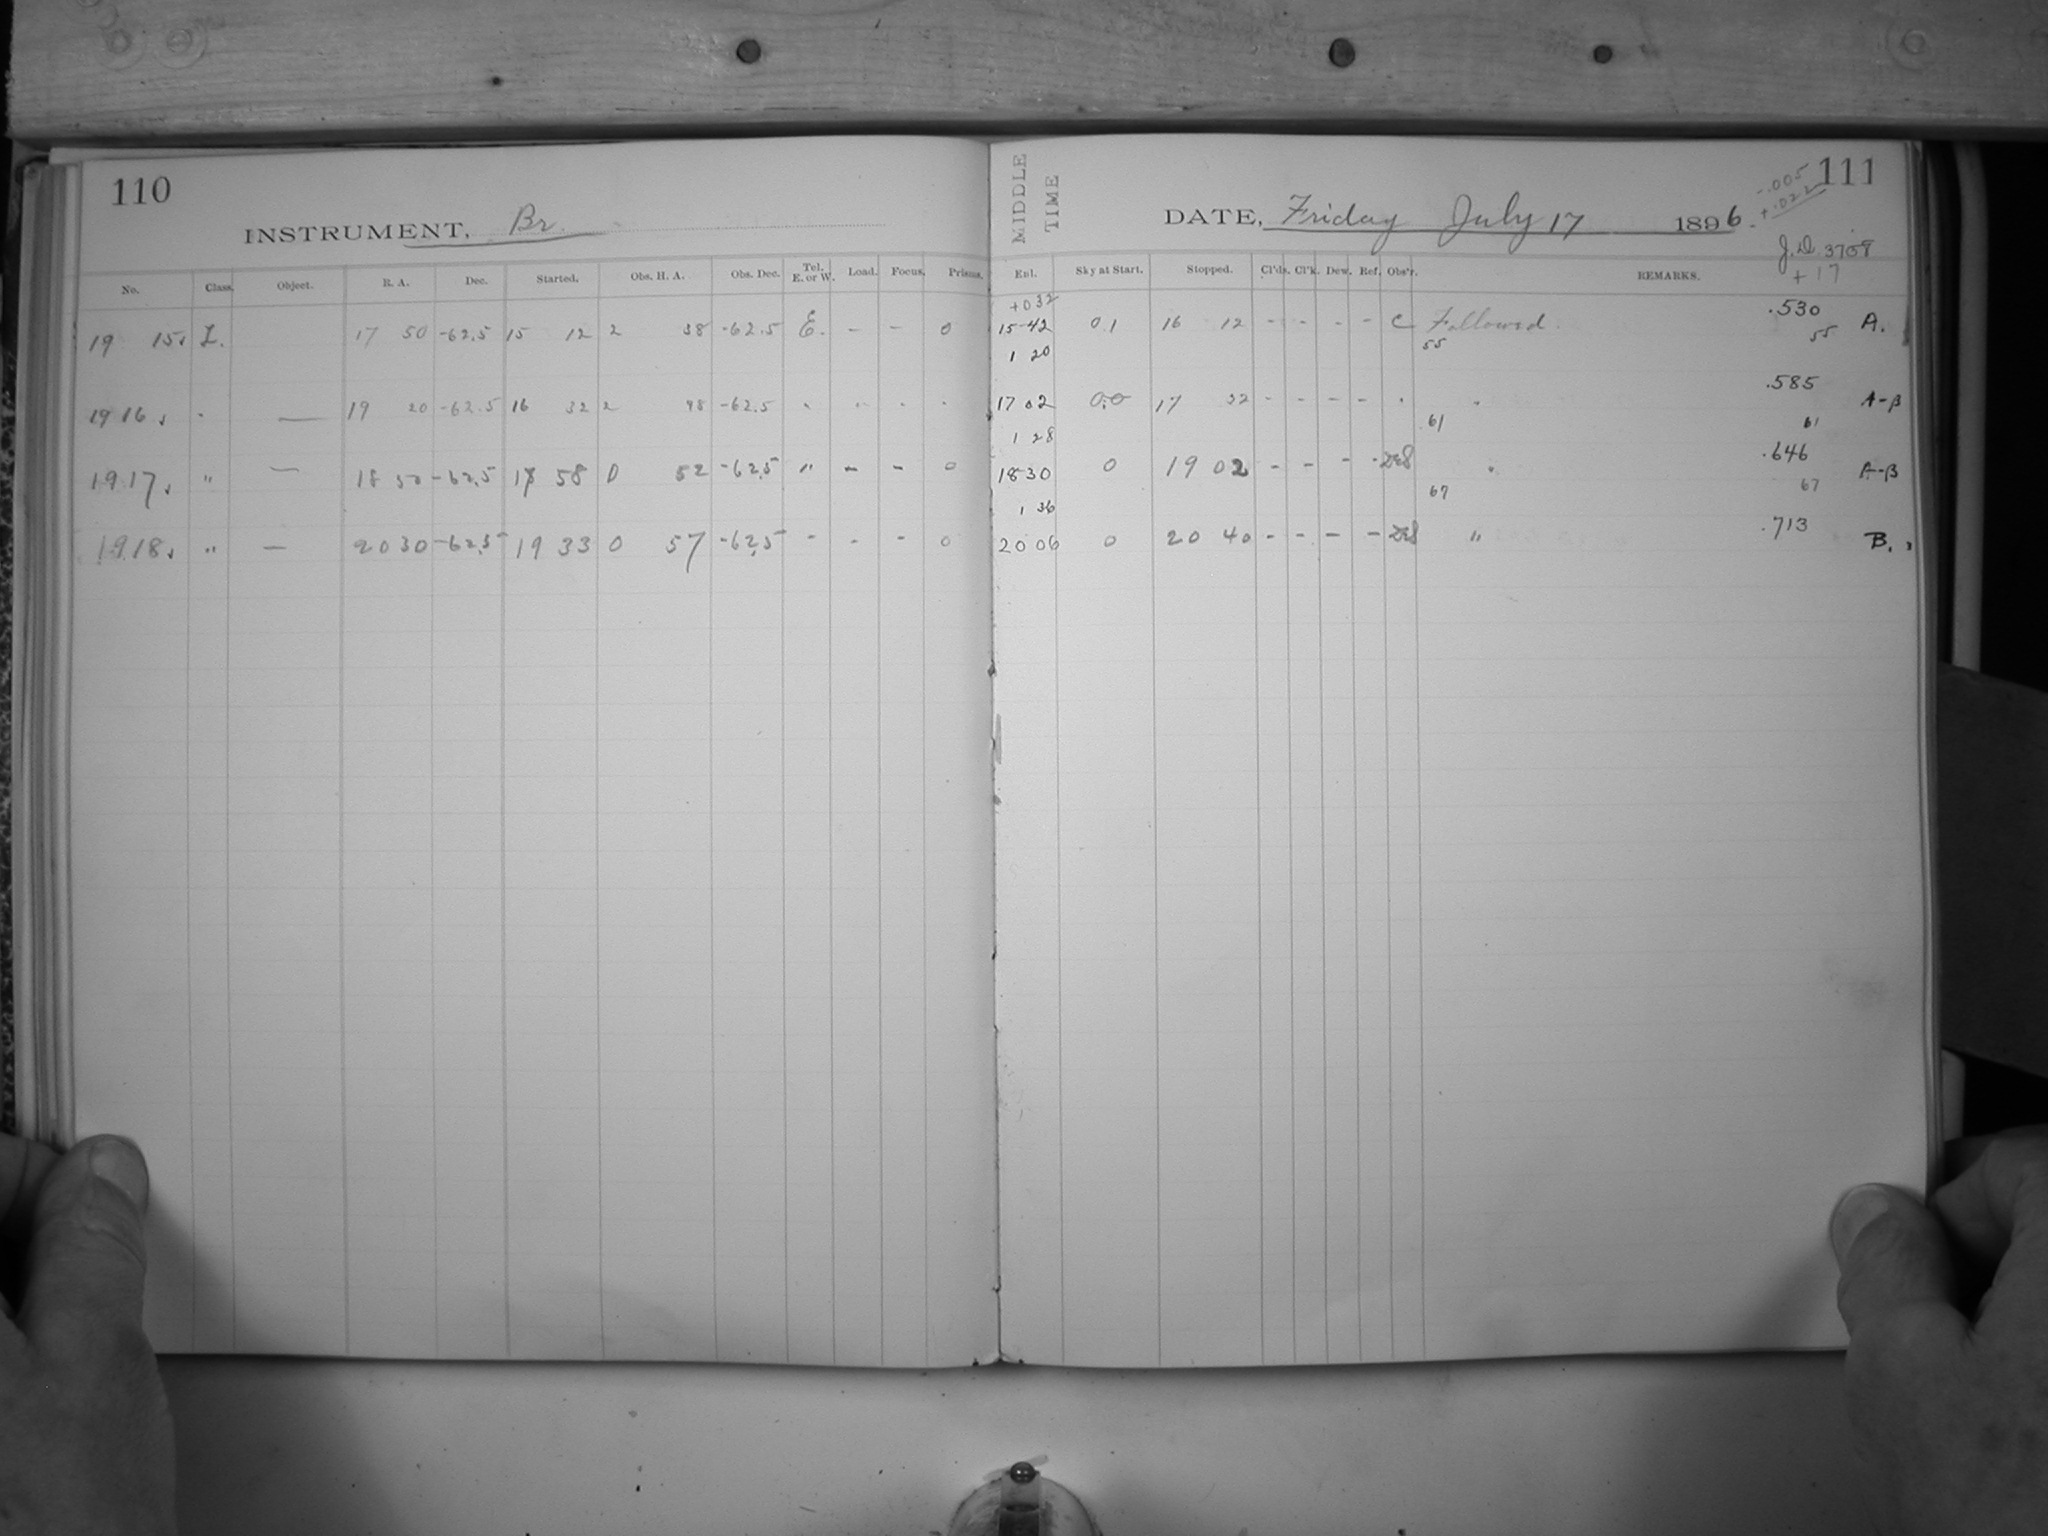 110
INSTRUMENT, Br.
No. Class. Object. R. A. Dec. Started. Obs. H. A. Obs. Dec. Tel. E. or W. Load. Focus. Prisms.
19 15, L. 17 50 -62.5 15 12 2 38 -62.5 E. - - 0
1916, — 19 20 -62.5 16 32 2 48 -62.5
1917, " — 18 50 -62.5 17 58 0 52 -62.5 " - - 0
1918, " — 20 30 -62.5 19 33 0 57 -62.5 - - - 0
MIDDLE TIME
111
-.005
+.022
DATE, Friday July 17 1896.
J.D. 3708
+17
Exl. Sky at Start. Stopped. Cl'ds. Cl'k. Dew. Ref. Obs'r. REMARKS.
+032
15 42 0.1 16 12 - - - - C Followed. .530 A.
1 20 55 55
17 02 0.0 17 32 - - - - " .585 A-β
1 28 61 61
18 30 0 19 02 - - - - " .646 A-β
1 36 67 67
20 06 0 20 40 - - - - " .713 B.